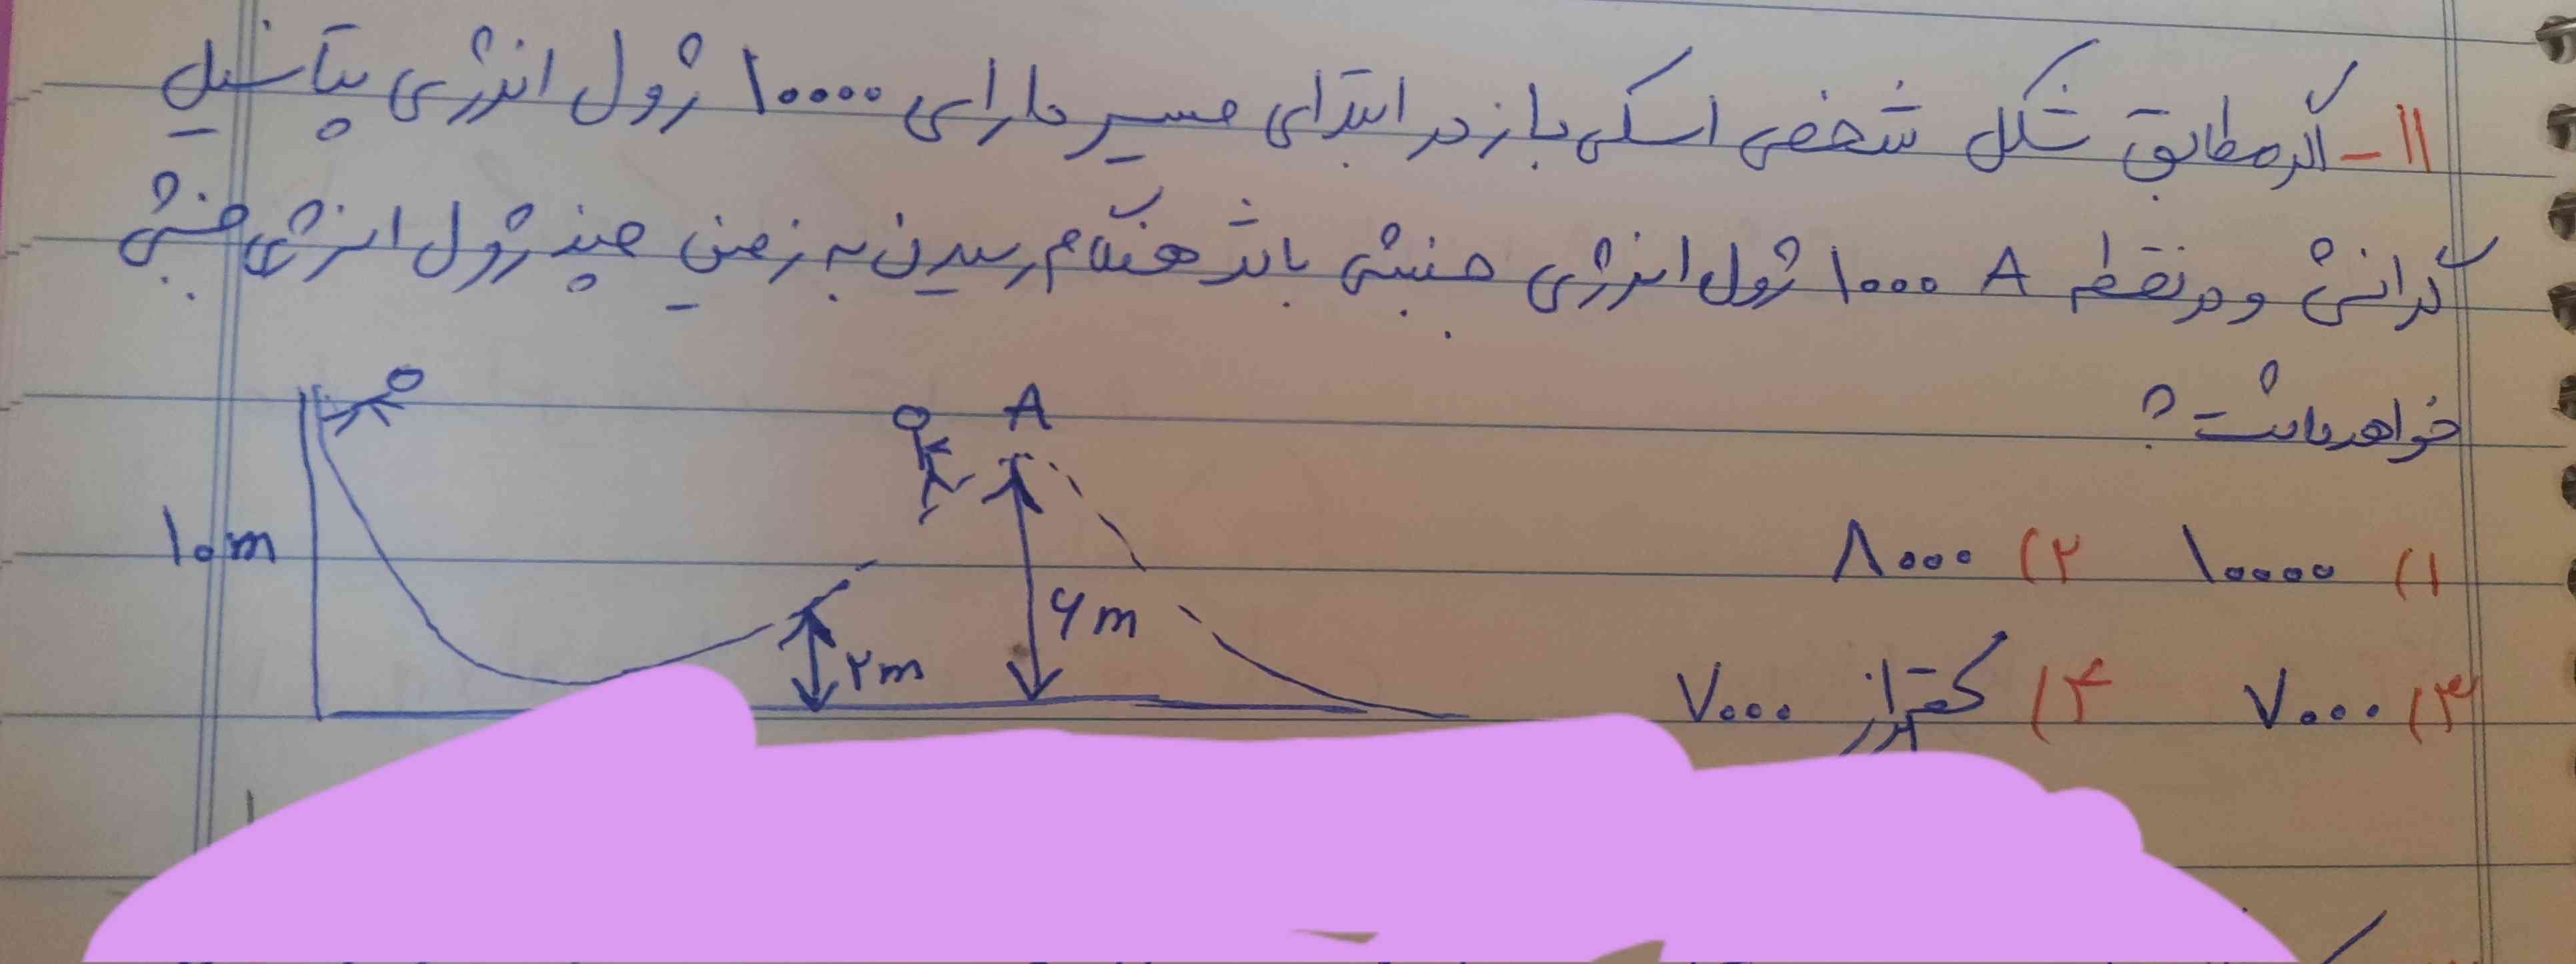 ۱۱- اگر مطابق شکل شخص اسکی باز در ابتدای مسیر دارای ۱۰۰۰۰ ژول انرژی پتانسیل
گرانشی و در نقطه A ۱۰۰۰ ژول انرژی جنبشی باشد هنگام رسیدن به زمین چند ژول انرژی جنبشی
خواهد داشت؟
A
۱۰m
۶m
۲m
۱) ۱۰۰۰۰ ۲) ۸۰۰۰
۳) ۷۰۰۰ ۴) کمتر از ۷۰۰۰